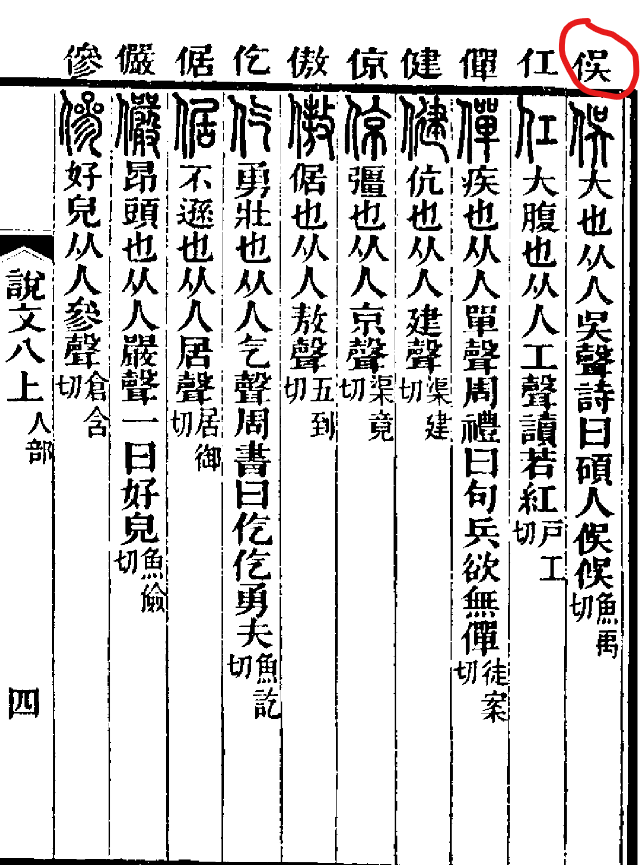 俁仜僤健倞傲仡倨儼傪
俁大也从人吳聲詩曰碩人俁俁魚禹切
仜大腹也从人工聲讀若紅戶工切
僤疾也从人單聲周禮曰句兵欲無僤徒案切
健伉也从人建聲渠建切
倞彊也从人京聲渠竟切
傲倨也从人敖聲五到切
仡勇壯也从人气聲周書曰仡仡勇夫魚訖切
倨不遜也从人居聲居御切
儼昂頭也从人嚴聲一曰好皃魚儉切
傪好皃从人參聲倉含切
說文八上人部
四